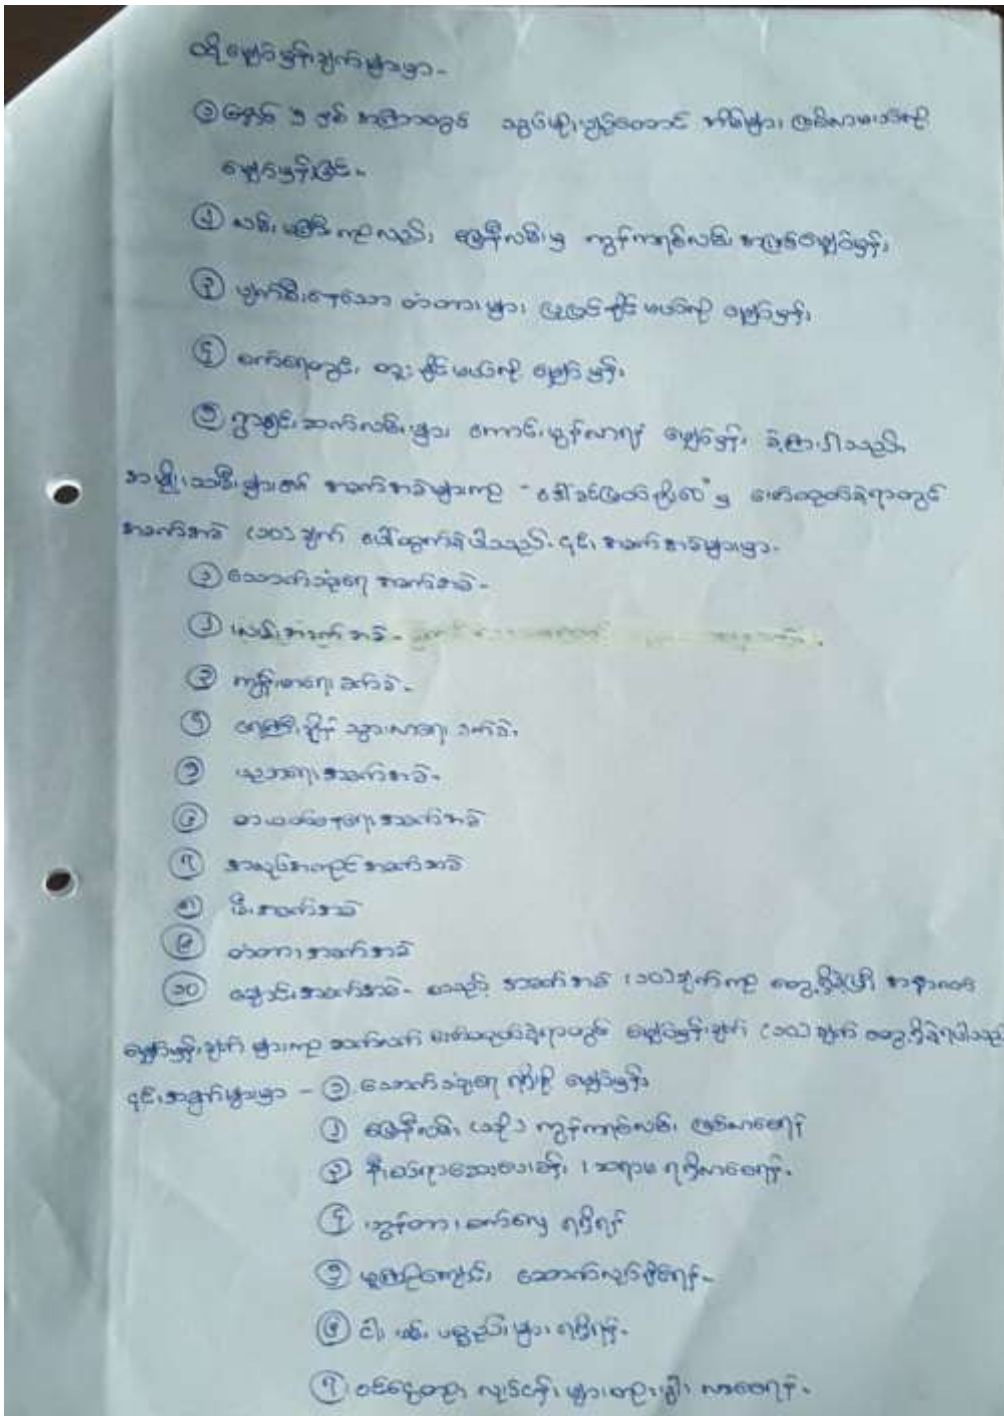 ထိုမျှော်မှန်းချက်များမှာ-
၁ နောက် ၅ နှစ် အကြာတွင် သွပ်မိုး၊ ပျဉ်ထောင် အိမ်များ ဖြစ်လာမယ်လို့
မျှော်မှန်းခြင်း။
၂ လမ်းမကြီးကလည်း မြေနီလမ်းမှ ကွန်ကရစ်လမ်း အဖြစ်မျှော်မှန်း၊
၃ ပျက်စီးနေသော တံတားများ ပြုပြင်နိုင်မယ်လို့ မျှော်မှန်း၊
၄ စက်ရေတွင်း တူးနိုင်မယ်လို့ မျှော်မှန်း၊
၅ ရွာချင်းဆက်လမ်းများ ကောင်းမွန်လာရန် မျှော်မှန်း ခဲ့ကြပါသည်။
အမျိုးသမီးများ၏ အခက်အခဲများကို မှ ဖော်ထုတ်ခဲ့ရာတွင်
အခက်အခဲ (၁၀) ချက် ပေါ်ထွက်ခဲ့ပါသည်။ ၎င်းအခက်အခဲများမှာ-
၁ သောက်သုံးရေ အခက်အခဲ-
၂ လမ်းအခက်အခဲ-
၃ ကျန်းမာရေး ခက်ခဲ-
၄ ရေကြီးချိန် သွားလာရေး ခက်ခဲ၊
၅ ပညာရေးအခက်အခဲ-
၆ စားဝတ်နေရေးအခက်အခဲ
၇ အလုပ်အကိုင်အခက်အခဲ
၈ မီးအခက်အခဲ
၉ တံတားအခက်အခဲ
၁၀ ချောင်းအခက်အခဲ- စသည့် အခက်အခဲ (၁၀) ချက်ကို တွေ့ရှိခဲ့ပြီး အနာဂတ်
မျှော်မှန်းချက် များကို ဆက်လက် ဖော်ထုတ်ခဲ့ရာတွင် မျှော်မှန်းချက် (၁၀) ချက် တွေ့ရှိခဲ့ရပါသည်
၎င်းအချက်များမှာ - ၁ သောက်သုံးရေ ရရှိဖို့ မျှော်မှန်း
၂ မြေနီလမ်း (သို့) ကွန်ကရစ်လမ်း ဖြစ်လာစေရန်
၃ ဆေးပေးခန်း၊ ဆရာမ ရရှိလာစေရန်-
၄ တံတား၊ စက်လှေ ရရှိရန်
၅ မူကြိုကျောင်း ဆောက်လုပ်နိုင်ရန်-
၆ မီး ပစ္စည်းများ ရရှိရန်-
၇ ဝင်ငွေတိုး လုပ်ငန်းများ တိုးပွါး လာစေရန်-